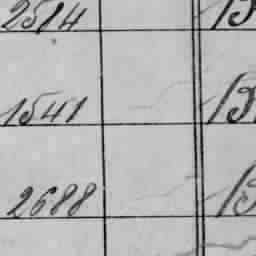 2514 B
1541 B
2688 B